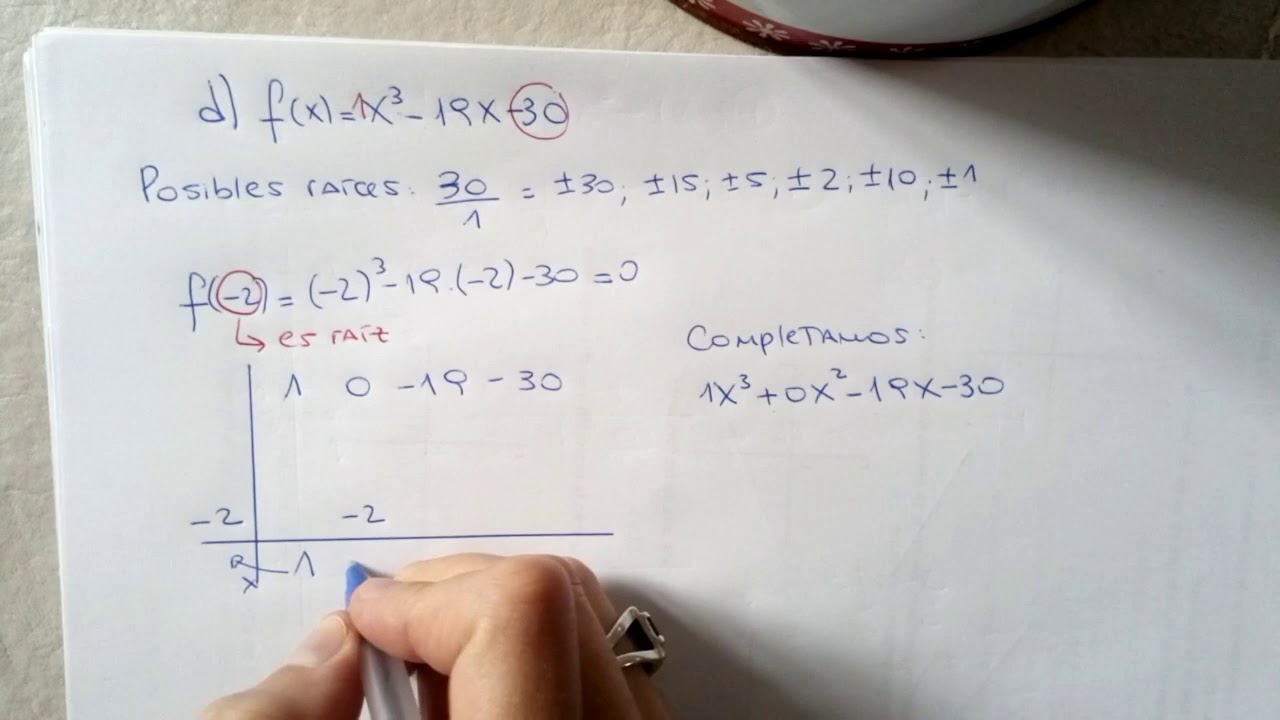 d) f(x)=1x³-19x-30
Posibles raíces: 30/1 = ±30; ±15; ±5; ±2; ±10; ±1
f(-2) = (-2)³-19.(-2)-30 = 0
↳ es raíz
Completamos:
1 0 -19 -30
1x³+0x²-19x-30
-2 -2
1